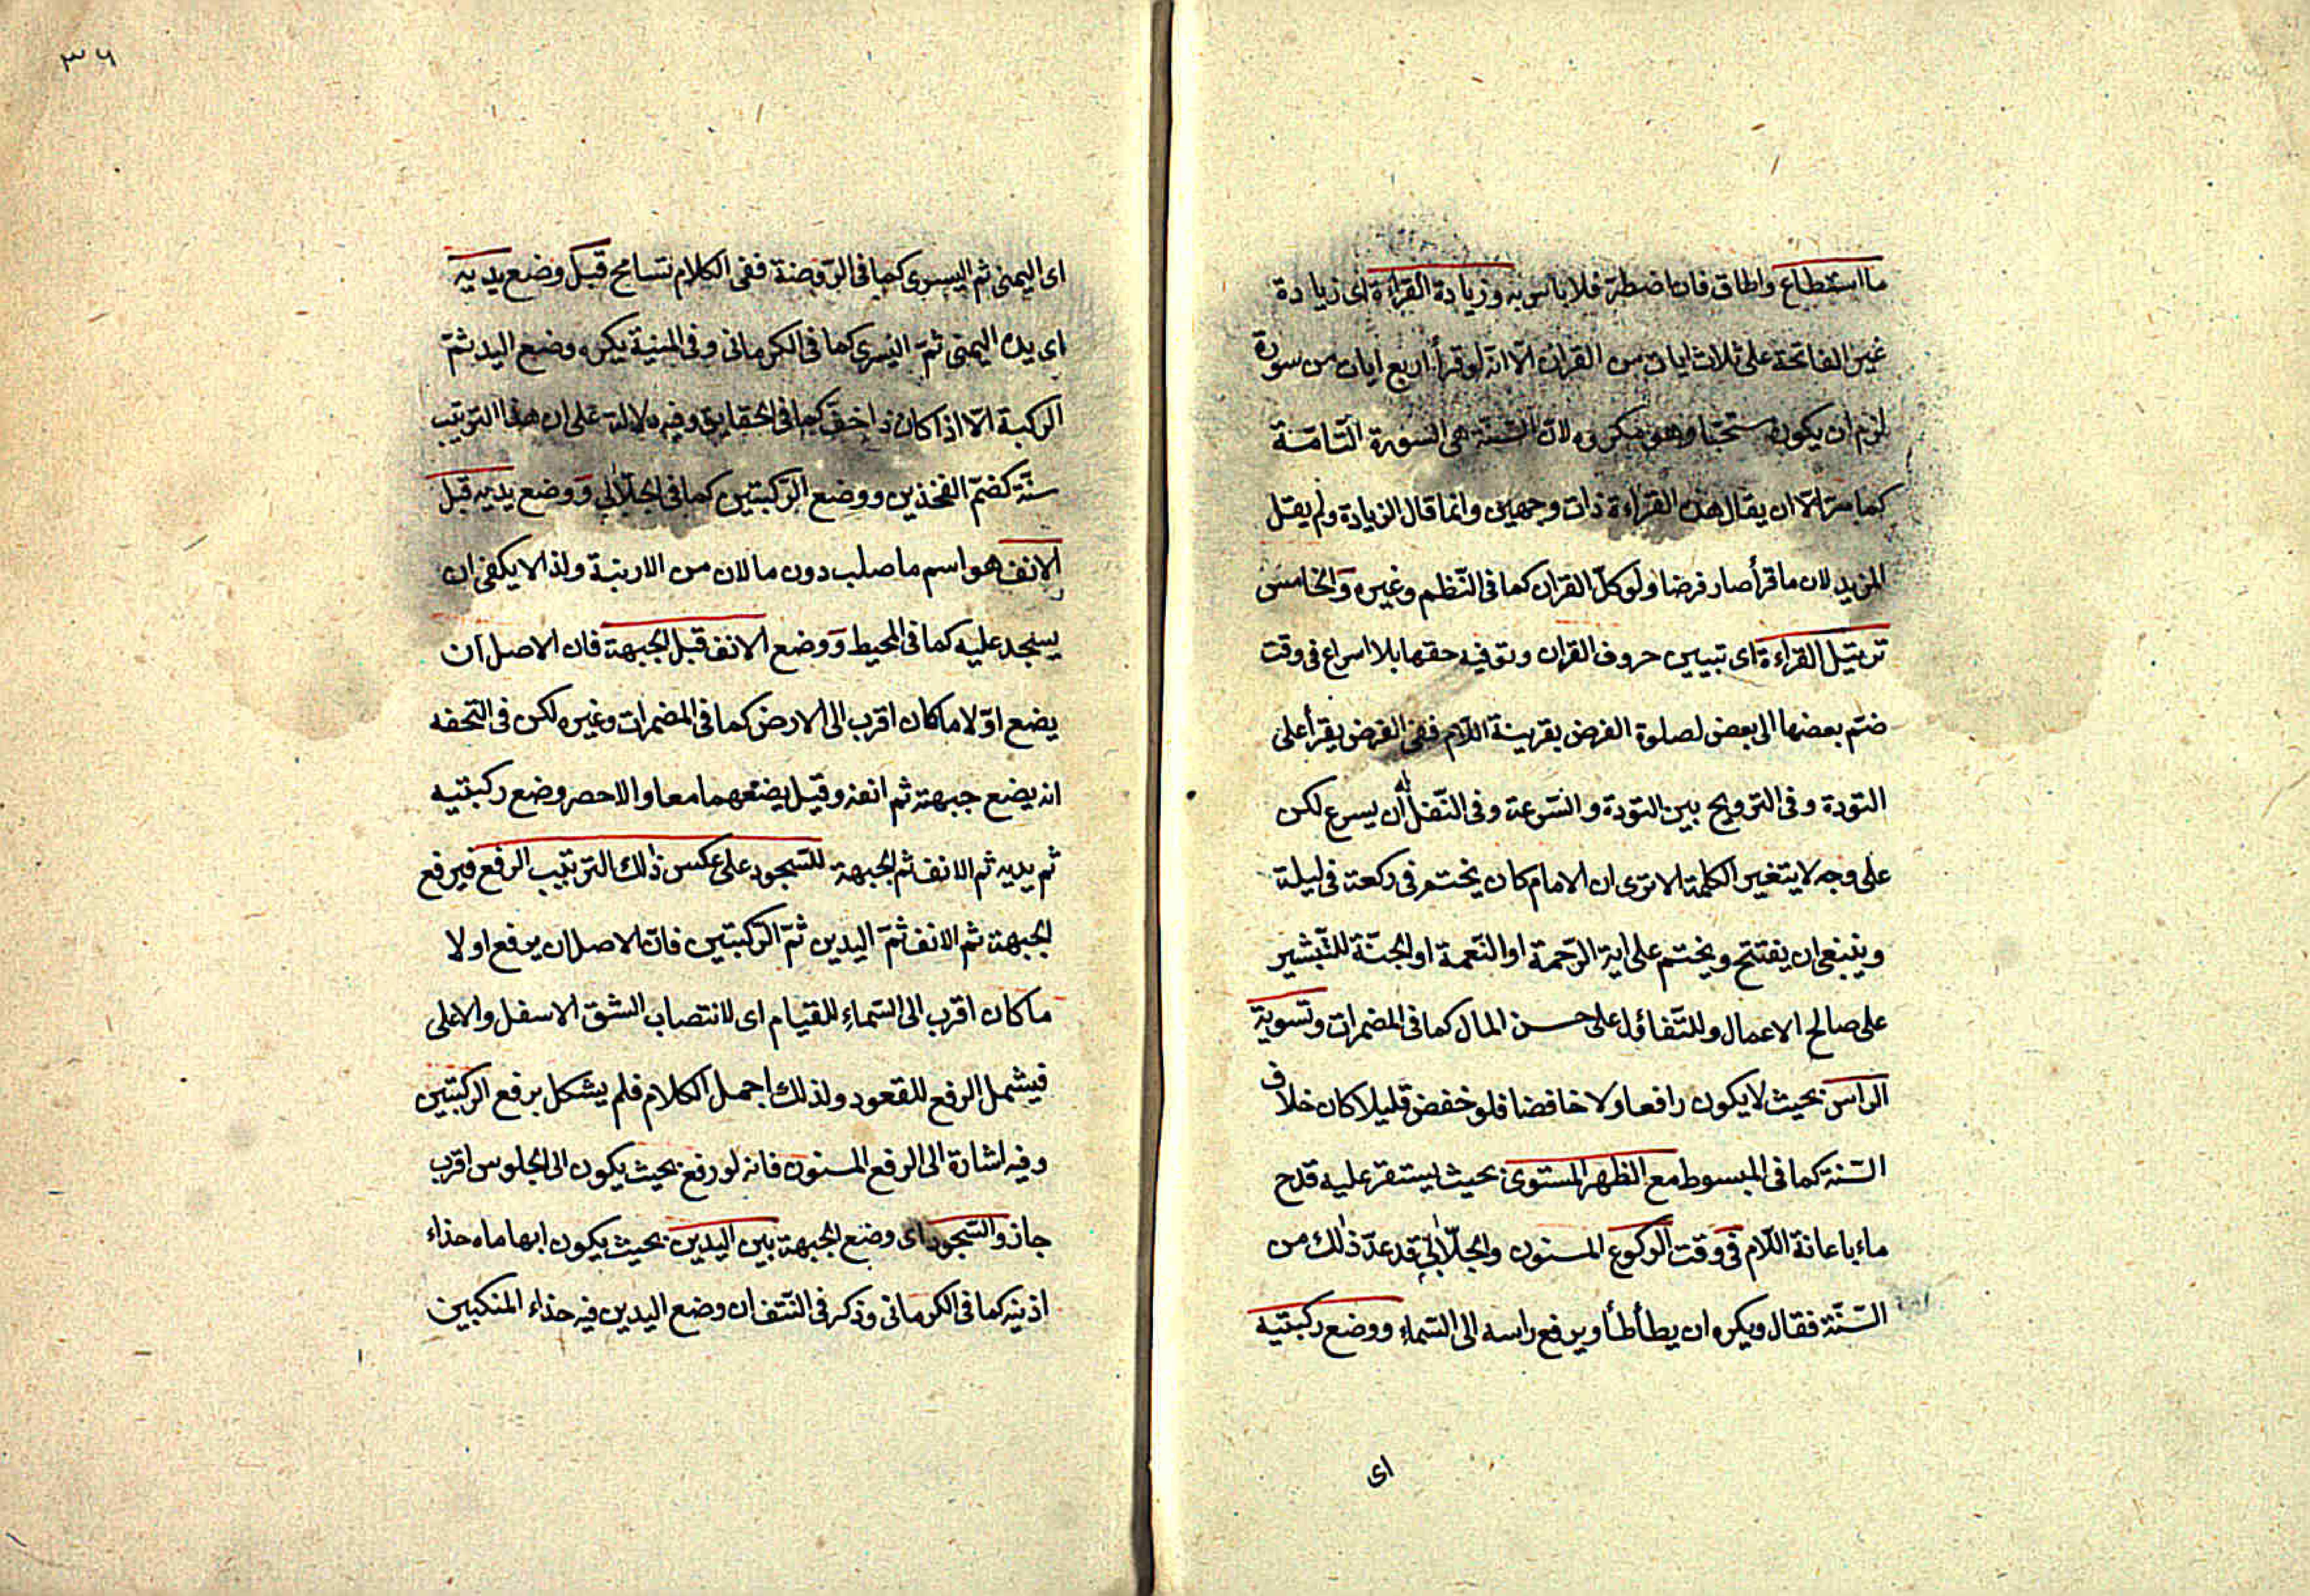 ما استطاع واطاق فان اضطر فلا باس به وزيادة القراءة اى زيادة
غير الفاتحة على ثلاث ايات من القران الّا انّه لو قرأ اربع ايات من سورة
لزم ان يكون مستحبا وهو مكروه لان السّنّة هى السورة التّامّة
كما مرّ الّا ان يقال هذه القراءة ذات وجهين وانما قال الزيادة ولم يقل
المزيد لان ما قرأ صار فرضا ولو كلّ القران كما فى النّظم وغيره وَالخامس
ترتيل القراءة اى تبيين حروف القران وتوفيه حقها بلا اسراع فى وقت
ضمّ بعضها الى بعض لصلوة الفرض بقرينة اللّام ففى الفرض يقرأ على
التودة وفى الترويح بين التودة والسّرعة وفى النّفل له ان يسرع لكن
على وجه لا يتغير الكلمة الا ترى ان الامام كان يختم فى ركعة فى ليلة
وينبغى ان يفتتح ويختم على اية الرّحمة او النّعمة او الجنّة للتّبشير
على صالح الاعمال وللتّفائل على حسن المال كما فى المضمرات وتسوية
الراس بحيث لا يكون رافعا ولا خافضا فلو خفض قليلا كان خلاف
السّنة كما فى المبسوط مع الظهر المستوى بحيث يستقر عليه قدح
ماء باعانة اللّام فى وقت الركوع المسنون والجلّابى قد عدّ ذلك من
السّنّة فقال ويكره ان يطأطأ ويرفع راسه الى السّماء ووضع ركبتيه
اى
٣٦
اى اليمنى ثم اليسرى كما فى الرّوضة ففى الكلام تسامح قبل وضع يديه
اى يده اليمنى ثمّ اليسرى كما فى الكرمانى وفى المنية يكره وضع اليد ثمّ
الركبة الّا اذا كان ذا خف كما فى الحقايق وفيه دلالة على ان هذا الترتيب
سنّة كضمّ الفخذين ووضع الرّكبتين كما فى الجلّابى وَوضع يديه قبل
الانف هو اسم ما صلب دون ما لان من الارنبة ولذا لا يكفى ان
يسجد عليه كما فى المحيط وَوضع الانف قبل الجبهة فان الاصل ان
يضع اوّلا ما كان اقرب الى الارض كما فى المضمرات وغيره لكن فى التحفه
انه يضع جبهته ثم انفه وقيل يضعهما معا والاحصر وضع ركبتيه
ثم يديه ثم الانف ثم الجبهة للسّجود على عكس ذلك الترتيب الرفع فيرفع
الجبهة ثم الانف ثمّ اليدين ثمّ الرّكبتين فانّ الاصل ان يرفع اولا
ما كان اقرب الى السّماءِ للقيام اى لانتصاب الشق الاسفل والاعلى
فيشمل الرفع للقعود ولذلك اجمل الكلام فلم يشكل برفع الركبتين
وفيه اشارة الى الرفع المسنون فانه لو رفع بحيث يكون الى الجلوس اقرب
جاز والسّجود اى وضع الجبهة بين اليدين بحيث يكون ابهاماه حذاء
اذنيه كما فى الكرمانى وذكر فى النّتف ان وضع اليدين فيه حذاء المنكبين